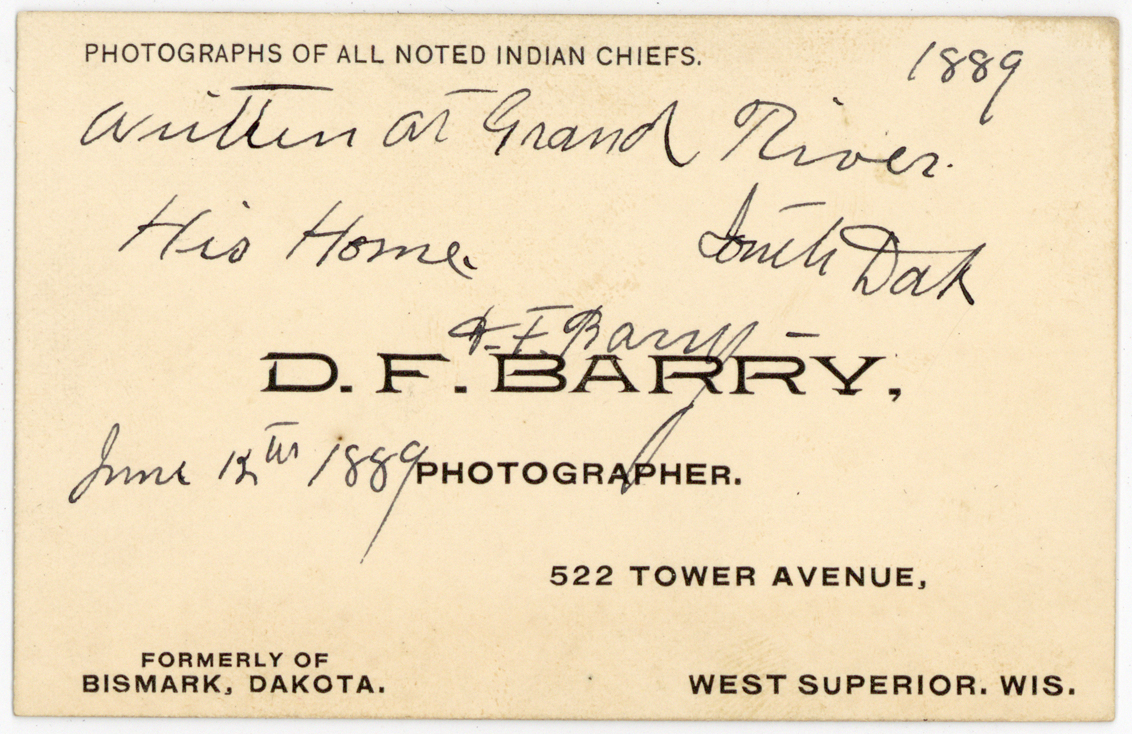 PHOTOGRAPHS OF ALL NOTED INDIAN CHIEFS.
1889
Written at Grand River.
His Home. South Dak
D. F. Barry -
D. F. BARRY,
June 12th 1889
PHOTOGRAPHER.
522 TOWER AVENUE,
FORMERLY OF
BISMARK, DAKOTA.
WEST SUPERIOR. WIS.